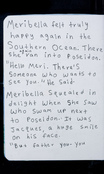 Meribella felt truly
happy again in the
Southern Ocean. There
she ran into Poseidon.
"Hello Meri. There's
someone who wants to
see you." He said.
Meribella Squealed in
delight when She Saw
who swam up next
to Poseidon. It was
a huge smile
on his face.
"But father your you